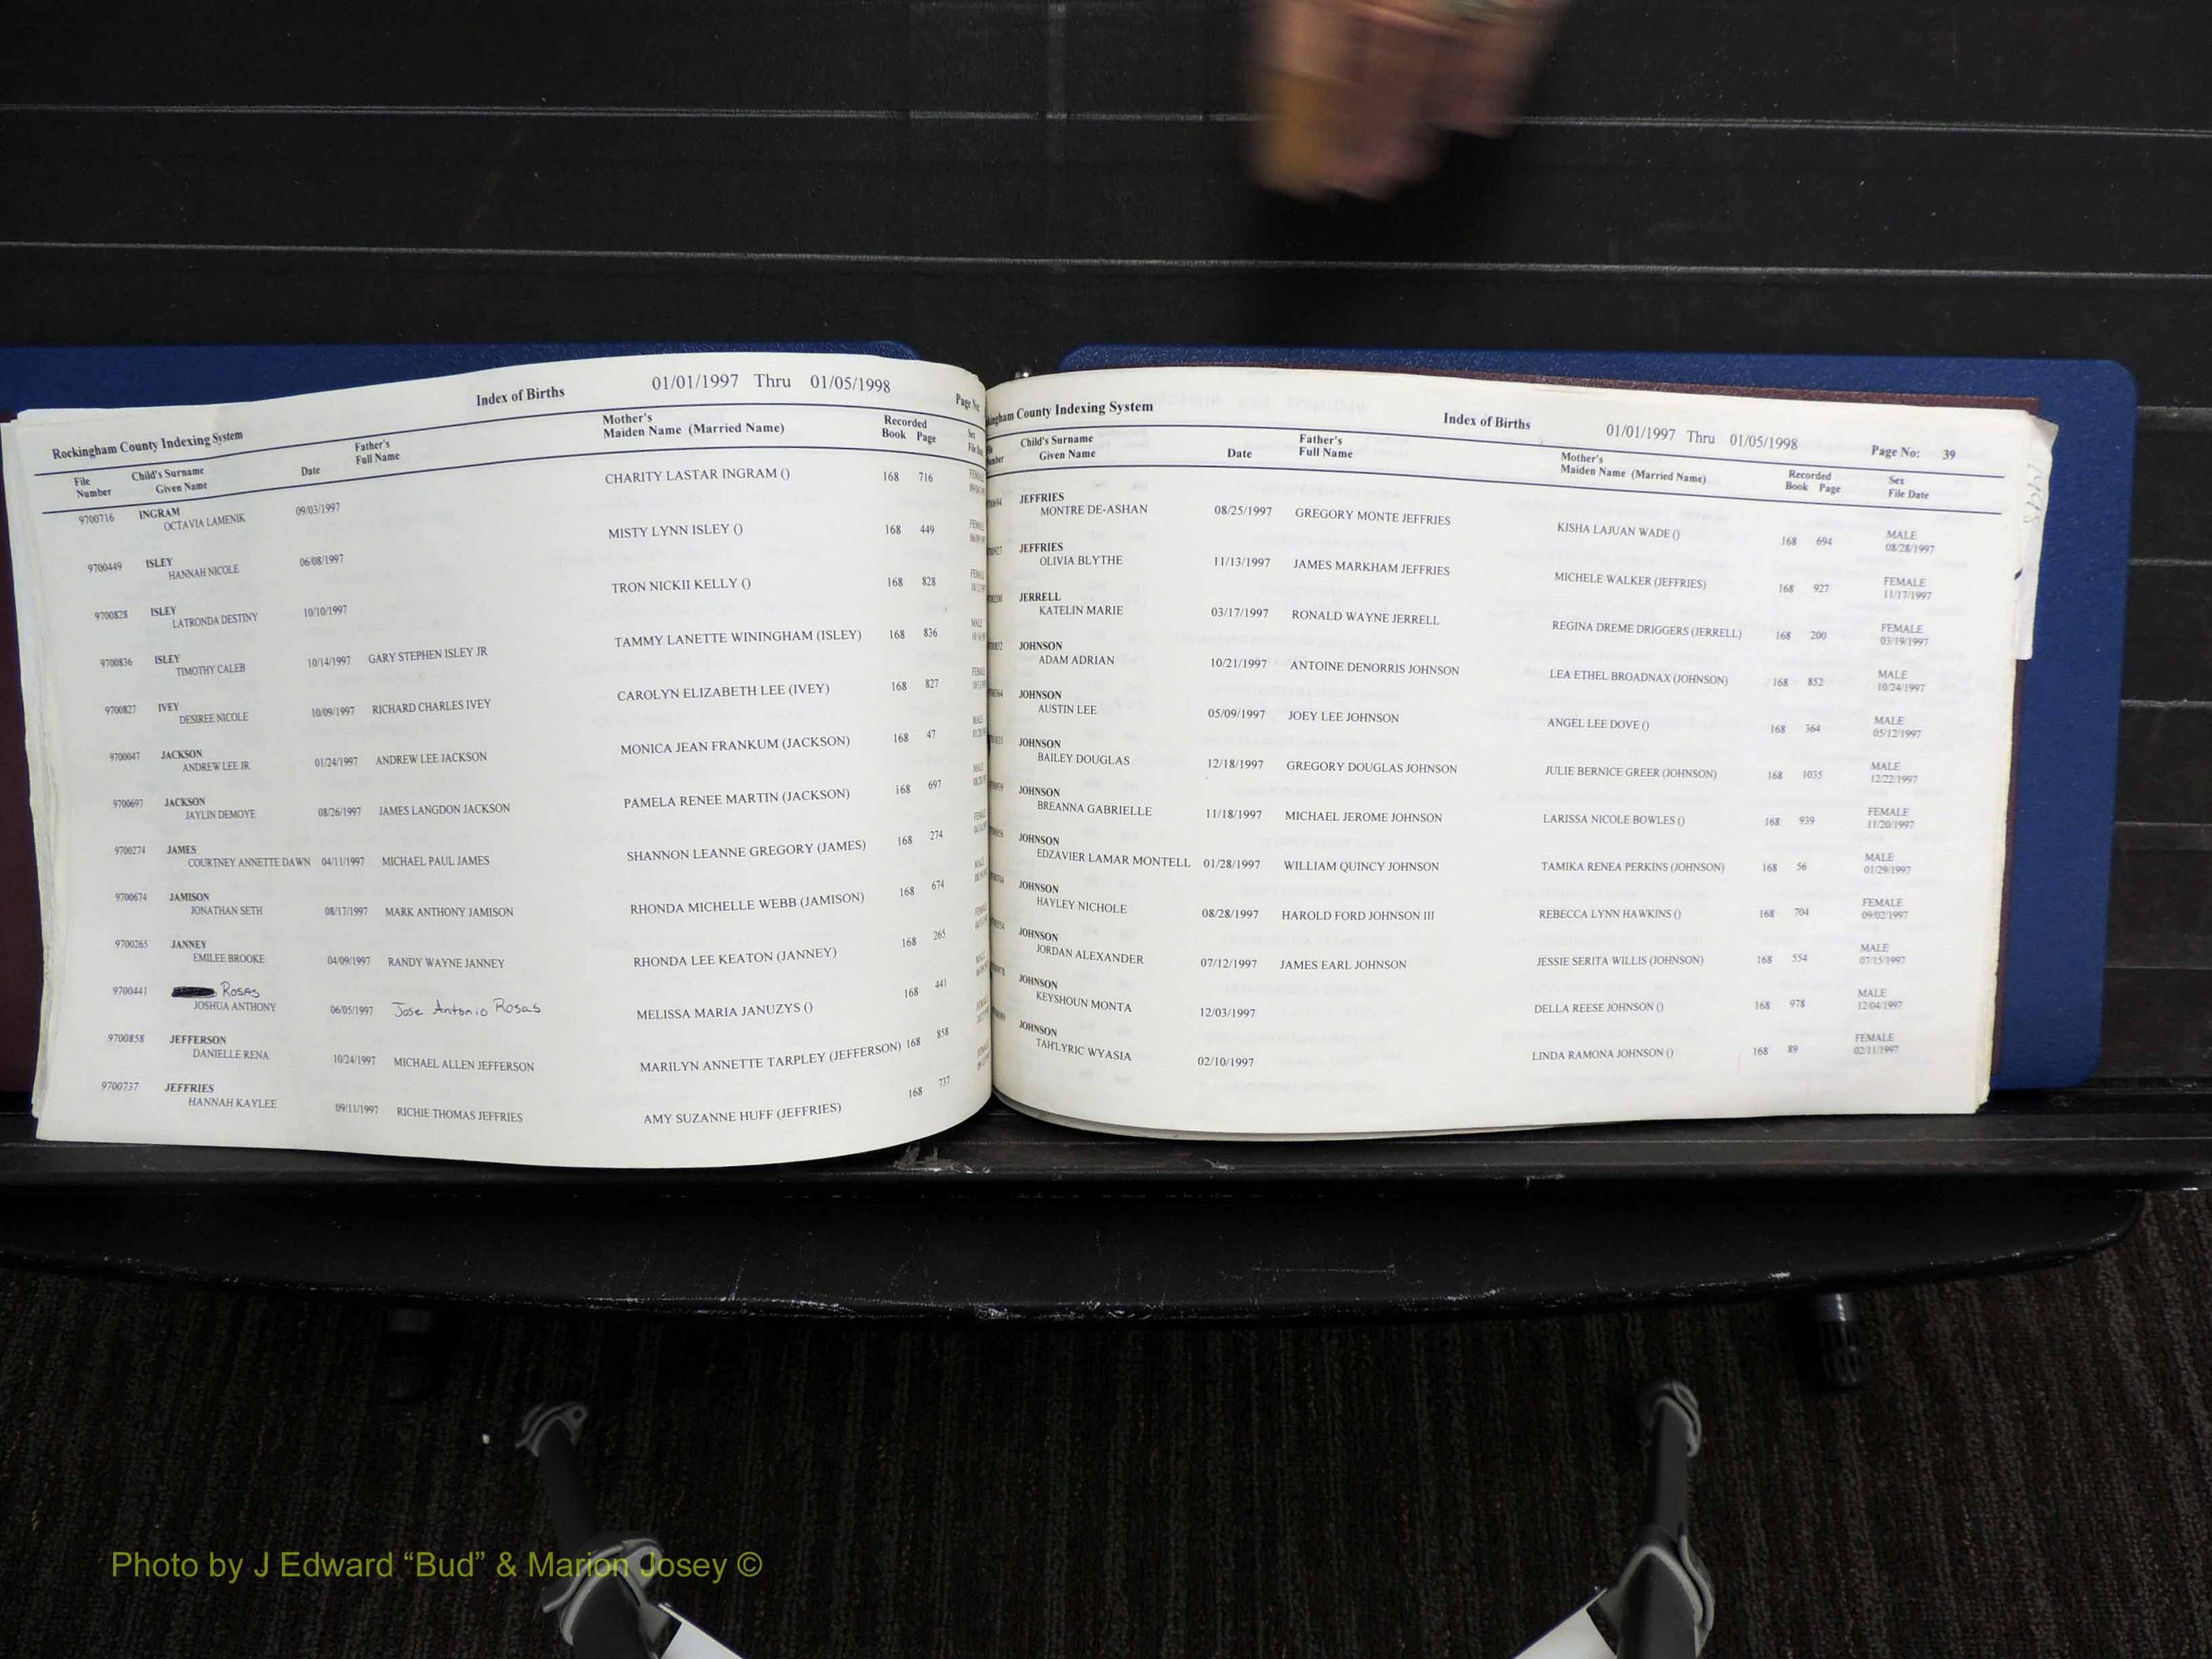 Rockingham County Indexing System Index of Births 01/01/1997 Thru 01/05/1998 Page No:
File Number Child's Surname Given Name Date Father's Full Name Mother's Maiden Name (Married Name) Recorded Book Page Sex
9700716 INGRAM 09/03/1997 CHARITY LASTAR INGRAM () 168 716
OCTAVIA LAMENIK
9700449 ISLEY 06/08/1997 MISTY LYNN ISLEY () 168 449
HANNAH NICOLE
9700828 ISLEY 10/10/1997 TRON NICKII KELLY () 168 828
LATRONDA DESTINY
9700836 ISLEY 10/14/1997 GARY STEPHEN ISLEY JR TAMMY LANETTE WININGHAM (ISLEY) 168 836
TIMOTHY CALEB
9700827 IVEY 10/09/1997 RICHARD CHARLES IVEY CAROLYN ELIZABETH LEE (IVEY) 168 827
DESIREE NICOLE
9700047 JACKSON 01/24/1997 ANDREW LEE JACKSON MONICA JEAN FRANKUM (JACKSON) 168 47
ANDREW LEE JR
9700697 JACKSON 08/26/1997 JAMES LANGDON JACKSON PAMELA RENEE MARTIN (JACKSON) 168 697
JAYLIN DEMOYE
9700274 JAMES
COURTNEY ANNETTE DAWN 04/11/1997 MICHAEL PAUL JAMES SHANNON LEANNE GREGORY (JAMES) 168 274
9700674 JAMISON
JONATHAN SETH 08/17/1997 MARK ANTHONY JAMISON RHONDA MICHELLE WEBB (JAMISON) 168 674
9700265 JANNEY
EMILEE BROOKE 04/09/1997 RANDY WAYNE JANNEY RHONDA LEE KEATON (JANNEY) 168 265
9700441 Rosas
JOSHUA ANTHONY 06/05/1997 Jose Antonio Rosas MELISSA MARIA JANUZYS () 168 441
9700858 JEFFERSON
DANIELLE RENA 10/24/1997 MICHAEL ALLEN JEFFERSON MARILYN ANNETTE TARPLEY (JEFFERSON) 168 858
9700737 JEFFRIES
HANNAH KAYLEE 09/11/1997 RICHIE THOMAS JEFFRIES AMY SUZANNE HUFF (JEFFRIES) 168 737
County Indexing System Index of Births 01/01/1997 Thru 01/05/1998 Page No: 39
Child's Surname Given Name Date Father's Full Name Mother's Maiden Name (Married Name) Recorded Book Page Sex File Date
JEFFRIES
MONTRE DE-ASHAN 08/25/1997 GREGORY MONTE JEFFRIES KISHA LAJUAN WADE () 168 694 MALE 08/28/1997
JEFFRIES
OLIVIA BLYTHE 11/13/1997 JAMES MARKHAM JEFFRIES MICHELE WALKER (JEFFRIES) 168 927 FEMALE 11/17/1997
JERRELL
KATELIN MARIE 03/17/1997 RONALD WAYNE JERRELL REGINA DREME DRIGGERS (JERRELL) 168 200 FEMALE 03/19/1997
JOHNSON
ADAM ADRIAN 10/21/1997 ANTOINE DENORRIS JOHNSON LEA ETHEL BROADNAX (JOHNSON) 168 852 MALE 10/24/1997
JOHNSON
AUSTIN LEE 05/09/1997 JOEY LEE JOHNSON ANGEL LEE DOVE () 168 364 MALE 05/12/1997
JOHNSON
BAILEY DOUGLAS 12/18/1997 GREGORY DOUGLAS JOHNSON JULIE BERNICE GREER (JOHNSON) 168 1035 MALE 12/22/1997
JOHNSON
BREANNA GABRIELLE 11/18/1997 MICHAEL JEROME JOHNSON LARISSA NICOLE BOWLES () 168 939 FEMALE 11/20/1997
JOHNSON
EDZAVIER LAMAR MONTELL 01/28/1997 WILLIAM QUINCY JOHNSON TAMIKA RENEA PERKINS (JOHNSON) 168 56 MALE 01/29/1997
JOHNSON
HAYLEY NICHOLE 08/28/1997 HAROLD FORD JOHNSON III REBECCA LYNN HAWKINS () 168 704 FEMALE 09/02/1997
JOHNSON
JORDAN ALEXANDER 07/12/1997 JAMES EARL JOHNSON JESSIE SERITA WILLIS (JOHNSON) 168 554 MALE 07/15/1997
JOHNSON
KEYSHOUN MONTA 12/03/1997 DELLA REESE JOHNSON () 168 978 MALE 12/04/1997
JOHNSON
TAH'LYRIC WYASIA 02/10/1997 LINDA RAMONA JOHNSON () 168 89 FEMALE 02/11/1997
Photo by J Edward “Bud” & Marion Josey ©